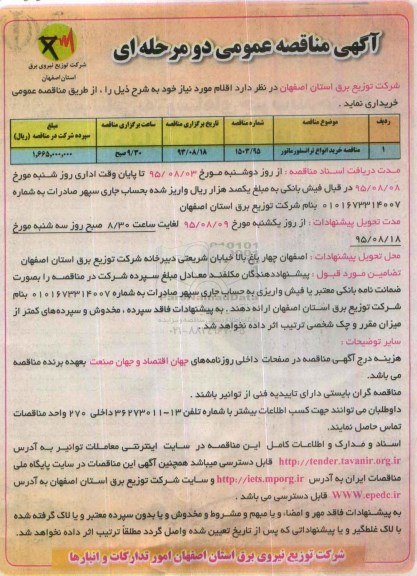 آگهی مناقصه عمومی دو مرحله ای
شرکت توزیع نیروی برق
استان اصفهان
شرکت توزیع برق استان اصفهان در نظر دارد اقلام مورد نیاز خود به شرح ذیل را ، از طریق مناقصه عمومی
خریداری نماید .
ردیف موضوع مناقصه شماره مناقصه تاریخ برگزاری مناقصه ساعت برگزاری مناقصه مبلغ سپرده شرکت در مناقصه (ریال)
۱ مناقصه خرید انواع ترانسفورماتور ۱۵۰۴/۹۵ ۹۴/۰۸/۱۸ ۹/۳۰ صبح ۱,۶۶۵,۰۰۰,۰۰۰
مدت دریافت اسناد مناقصه : از روز دوشنبه مورخ ۹۵/۰۸/۰۳ تا پایان وقت اداری روز شنبه مورخ
۹۵/۰۸/۰۸ در قبال فیش بانکی به مبلغ یکصد هزار ریال واریز شده بحساب جاری سپهر صادرات به شماره
۰۱۰۱۶۷۳۳۱۴۰۰۷ بنام شرکت توزیع برق استان اصفهان
مدت تحویل پیشنهادات : از روز یکشنبه مورخ ۹۵/۰۸/۰۹ لغایت ساعت ۸/۳۰ صبح روز سه شنبه مورخ
۹۵/۰۸/۱۸
محل تحویل پیشنهادات : اصفهان چهار باغ بالا خیابان شریعتی دبیرخانه شرکت توزیع برق استان اصفهان
تضامین مورد قبول : پیشنهاددهندگان مکلفند معادل مبلغ سپرده شرکت در مناقصه را بصورت
ضمانت نامه بانکی معتبر یا فیش واریزی به حساب جاری سپهر صادرات به شماره ۰۱۰۱۶۷۳۳۱۴۰۰۷ بنام
شرکت توزیع برق استان اصفهان ارائه دهند . به پیشنهادات فاقد سپرده ، مخدوش و سپرده‌های کمتر از
میزان مقرر و چک شخصی ترتیب اثر داده نخواهد شد .
سایر توضیحات :
هزینه درج آگهی مناقصه در صفحات داخلی روزنامه‌های جهان اقتصاد و جهان صنعت بعهده برنده مناقصه
می باشد.
مناقصه گران بایستی دارای تاییدیه فنی از توانیر باشند .
داوطلبان می توانند جهت کسب اطلاعات بیشتر با شماره تلفن ۱۳-۳۶۲۷۳۰۱۱ داخلی ۲۷۰ واحد مناقصات
تماس حاصل نمایند.
اسناد و مدارک و اطلاعات کامل این مناقصه در سایت اینترنتی معاملات توانیر به آدرس
http://tender.tavanir.org.ir قابل دسترسی میباشد همچنین آگهی این مناقصات در سایت پایگاه ملی
مناقصات ایران به آدرس http://iets.mporg.ir و سایت شرکت توزیع برق استان اصفهان به آدرس
WWW.epedc.ir قابل دسترسی می باشد .
به پیشنهادات فاقد مهر و امضاء و یا مبهم و مشروط و مخدوش و یا بدون سپرده معتبر و یا لاک گرفته شده
با لاک غلطگیر و یا پیشنهاداتی که پس از تاریخ تعیین شده واصل گردد مطلقاً ترتیب اثر داده نخواهد شد.
شرکت توزیع نیروی برق استان اصفهان امور تدارکات و انبارها